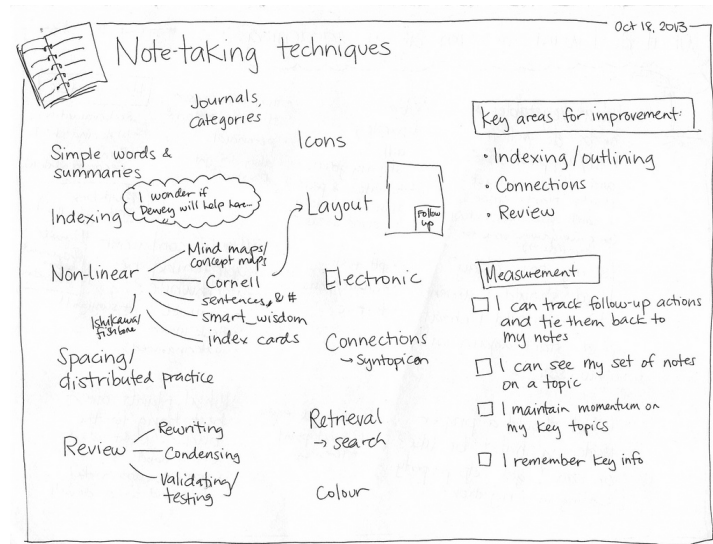 Oct 18, 2013
Note-taking techniques
Journals,
categories
Simple words &
summaries
Indexing
I wonder if
Dewey will help here...
Non-linear
Mind maps/
concept maps
Cornell
sentences, & #
smart_wisdom
index cards
Ishikawa/
fishbone
Spacing/
distributed practice
Review
Rewriting
Condensing
Validating/
testing
Icons
Layout
Follow
up
Electronic
Connections
→ Syntopicon
Retrieval
→ search
Colour
Key areas for improvement:
• Indexing/outlining
• Connections
• Review
Measurement
I can track follow-up actions
and tie them back to
my notes
I can see my set of notes
on a topic
I maintain momentum on
my key topics
I remember key info